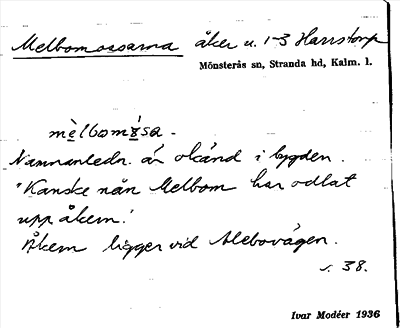 Melbomossarna åker u. 1-3 Harrstorp
Mönsterås sn, Stranda hd, Kalm. l.
mèlbomósa -
Namnanledn. är okänd i bygden.
"Kanske nån Melbom har odlat
upp åkern."
Åkern ligger vid Alebovägen.
s. 38.
Ivar Modéer 1936